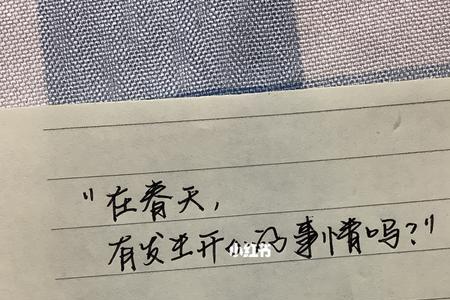 "在春天,
有发生开心的事情吗?"
小红书